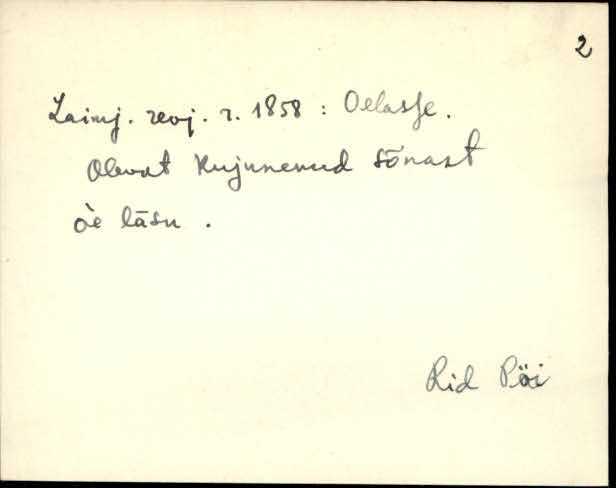 2
Laimj. revj. r. 1858 : Oelasse.
Olevat kujunenud sõnast
õe lāsu .
Rid Pöi